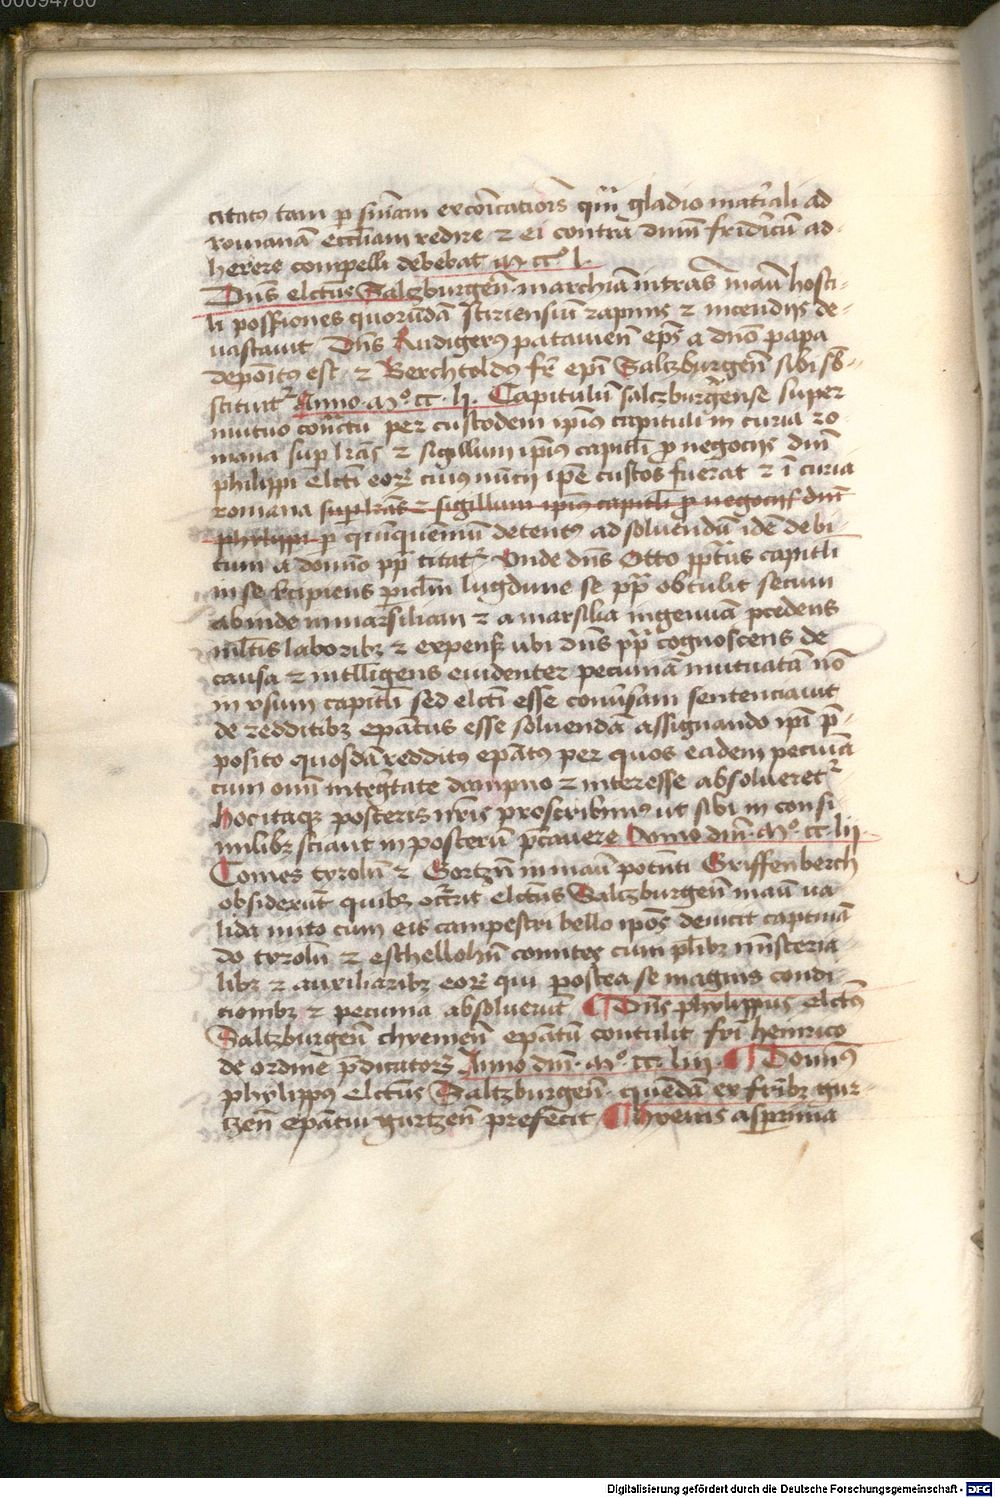 00094780
citatus tam p sniam excoicatiois qm gladio matiali ad
romanā eccliam redire ⁊ ei contra dnm fridicū ad-
herere compelli debebat mº ccº l.
Dns elctus Saltzburgen marchiā intrās manu hosti-
li possiones quorūdā Stiriensiū rapinis ⁊ incendijs de-
vastavit Dns Rudigerus patavien eps a dno papa
deposit⁹ est ⁊ Berchtoldus fr epi Saltzburgen sibi sb-
stituit Anno mº cc li. Capitulū salczburgense super
mutuo contctu per custodem ipius capituli in curia ro-
mana sup lras ⁊ sigillum ipius capitli p negocijs dni
philippi elcti eor cuius nuncij ipe custos fuerat ⁊ i curia
romana sup lras ⁊ sigillum ipius capitli p negocijs dni
phylippi p quinquenniū detentus ad soluendū idē debi-
tum a domno pp citat Unde dns Otto ppitus capitli
in se recipiens piclm lugdune se pp obtulit secum
abinde in marsiliam ⁊ a marsilia in genuā pcedens
mltis laboribz ⁊ expens ubi dns pp cognoscens de
causa ⁊ intlligens euidenter pecuniā mutuatā nō
in usum capitli sed elcti esse conuersam sentenciauit
de redditibz epatus esse soluendā assignando ipi p-
posito quosdā redditus epatus per quos eadem pecunia
cum omi integritate dampno ⁊ interesse absolueretr
hoc itaqz posteris nris proscribimus ut sibi in consi-
milibz sciant in posterū pcauere Anno dni mº cc lii
Comes tyrolū ⁊ Gortzn in manu potenti Griffenberch
obsiderūt quibz occrit elctus Saltzburgen manu va-
lida inito cum eis campestri bello ipos deuicit captiuā
do tyrolū ⁊ eschellohn comites cum plibz ministeria
libz ⁊ auxiliaribz eor qui postea se magnis condi
cionibz ⁊ pecunia absoluerūt ¶ Dns phylippus elctus
Saltzburgen chyemen epatū contulit fri heinrico
de ordine pdicator Anno dni mº cc liii ¶ Domnus
phylippus elctus Saltzburgen quendā ex fribz gur-
tzen epatui gurtzen prefecit ¶ hyems asperrima
Digitalisierung gefördert durch die Deutsche Forschungsgemeinschaft - DFG